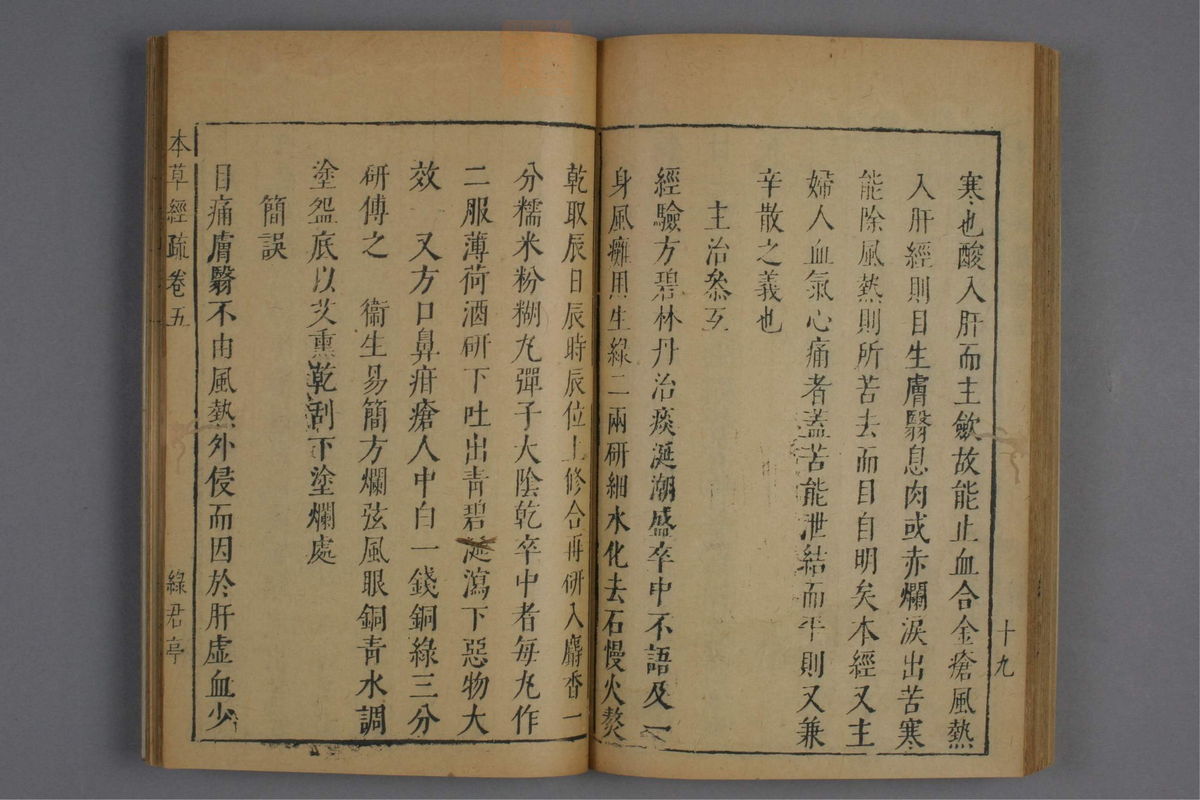 寒也酸入肝而主斂故能止血合金瘡風熱
入肝經則目生膚翳息肉或赤爛淚出苦寒
能除風熱則所苦去而目自明矣本經又主
婦人血氣心痛者蓋苦能泄結而平則又兼
辛散之義也
主治叅互
經驗方碧林丹治痰涎潮盛卒中不語及一
身風癱用生綠二兩研細水化去石慢火熬
十九
乾取辰日辰時辰位上修合再研入麝香一
分糯米粉糊丸彈子大陰乾卒中者每丸作
二服薄荷酒研下吐出青碧涎瀉下惡物大
效　又方口鼻疳瘡人中白一錢銅綠三分
研傅之　衞生易簡方爛弦風眼銅青水調
塗盌底以艾熏乾刮下塗爛處
簡誤
目痛膚翳不由風熱外侵而因於肝虛血少
本草經疏卷五
綠君亭